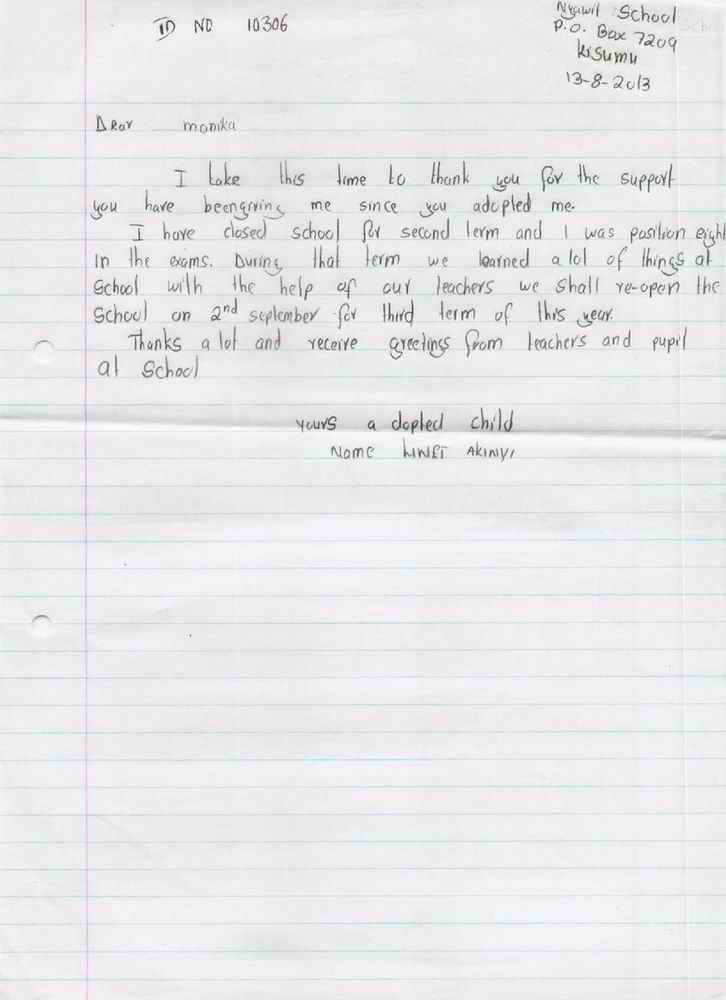 ID NO 10306
Nyawil School
P.O. Box 7209
Kisumu
13-8-2013
Dear monika
I take this time to thank you for the support
you have beengiving me since you adopted me.
I have closed school for second term and I was position eight
In the exams. During that term we learned a lot of things at
School with the help of our teachers we shall re-open the
School on 2nd september for third term of this year.
Thanks a lot and receive greetings from teachers and pupil
at School
yours a dopted child
Name LINET AKINYI